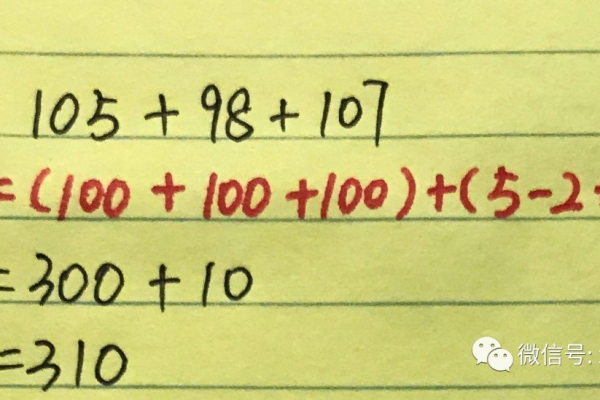 105 + 98 + 107
=(100 + 100 +100)+(5-2
=300 + 10
=310
微信号: